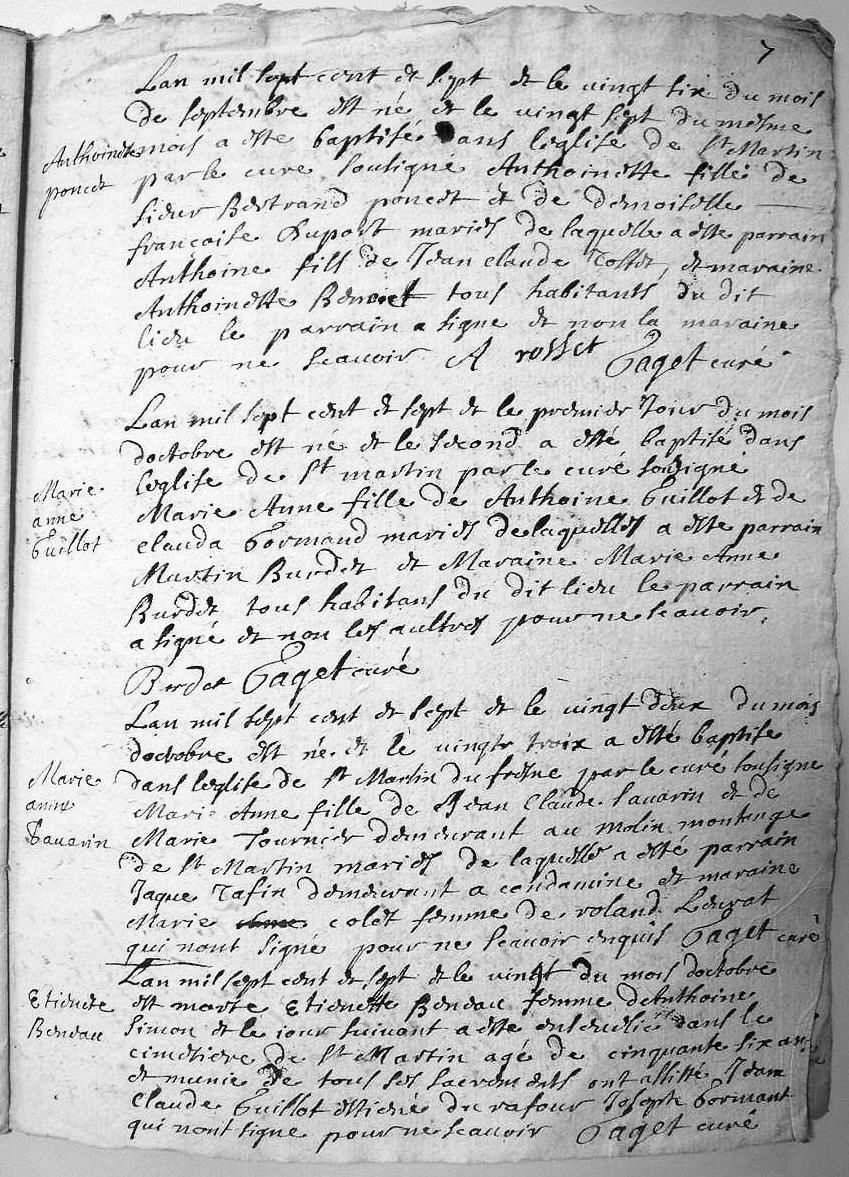 7
Lan mil sept cent et sept et le vingt six du mois
de septembre est né et le vingt sept du mesme
mois a este baptisé dans leglise de St Martin
par le curé sousigné Anthoinette fille de
Sieur Bertrand poncet et de demoiselle
francoise Duport mariés de laquelle a este parrain
Anthoine fils de Jean claude Rosset, et maraine
Anthoinette Benoiet tous habitants du dit
lieu le parrain a signe et non la maraine
pour ne scauoir A rosset Paget curé
Anthoinette
poncet
Lan mil sept cent et sept et le premier Jour du mois
doctobre est né et le second a esté baptisé dans
leglise de St martin par le curé sousigné
Marie Anne fille de Anthoine Guillot et de
clauda Gormand mariés de laquelles a este parrain
Martin Burdet et Maraine Marie Anne
Burdet tous habitans du dit lieu le parrain
a signé et non les aultres pour ne scauoir,
Burdet Paget curé
Marie
anne
Guillot
Lan mil sept cent et sept et le vingt deux du mois
doctobre est né et le vingt troix a esté baptise
dans leglise de St Martin du fresne par le curé sousigne
Marie Anne fille de Jean Claude Sauarin et de
Marie Tournier demeurant au molin montange
de St Martin mariés de laquelles a esté parrain
Jaque Tafin demeurant a condamine et maraine
Marie colet femme de roland Leurat
qui nont signé pour ne scauoir enquis Paget curé
Marie
anne
Sauarin
Lan mil sept cent et sept et le vingt du mois doctobre
est morte Etienette Bondau femme dAnthoine
Simon et le jour suiuant a este enseuelie dans le
cimetiere de St Martin agé de cinquante six ans
et munie de tous ses sacrements ont assisté Jean
Claude Guillot du rafour Joseph Gormant
qui nont signe pour ne scauoir Paget curé
Etienete
Bondau